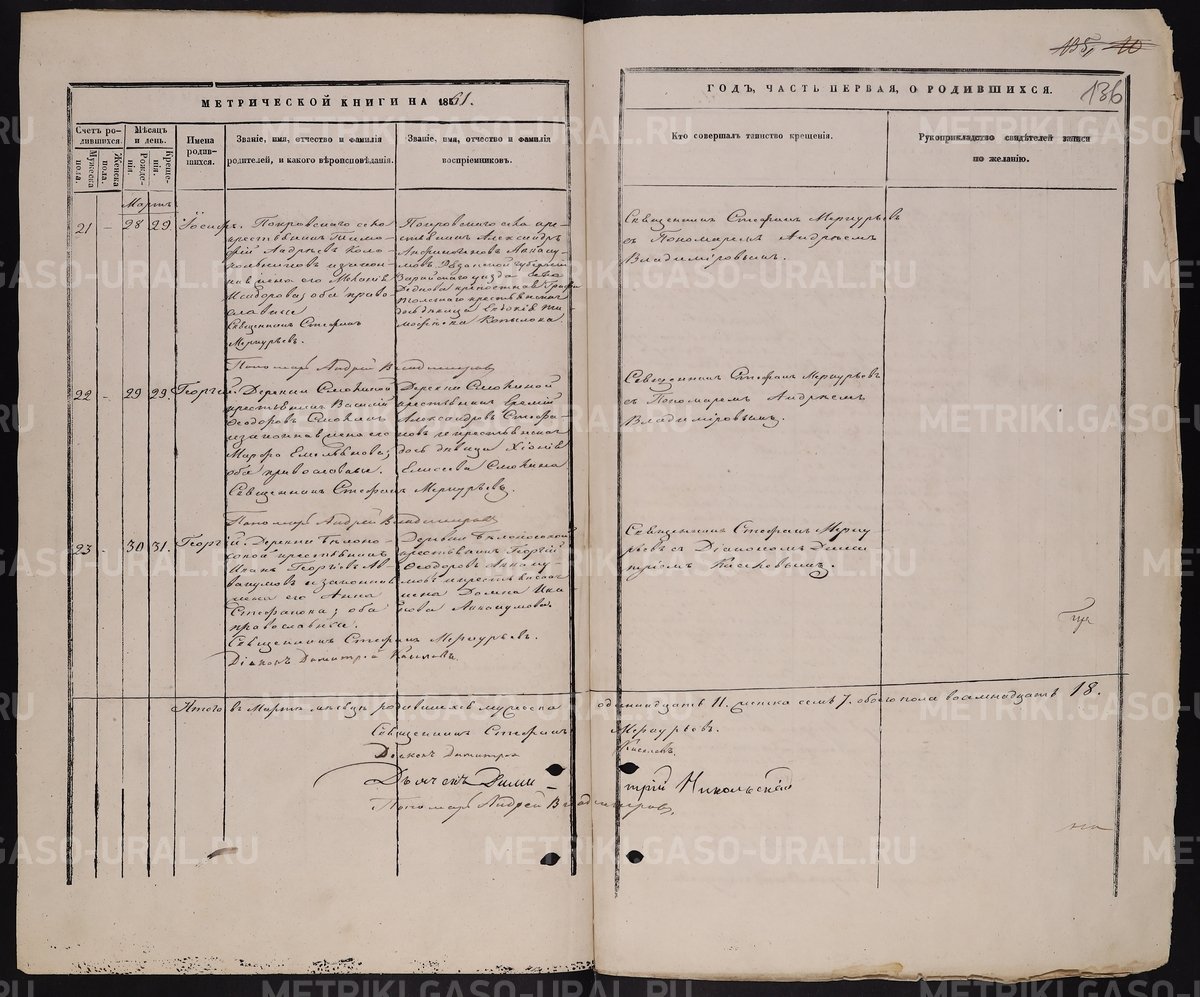 135, 20
136
МЕТРИЧЕСКОЙ КНИГИ НА 1861.
ГОДЪ, ЧАСТЬ ПЕРВАЯ, О РОДИВШИХСЯ.
Счетъ родившихся.
Мужеска пола.
Женска пола.
Мѣсяцъ и день.
Рожденія.
Крещенія.
Имена родившихся.
Званіе, имя, отчество и фамилія родителей, и какого вѣроисповѣданія.
Званіе, имя, отчество и фамилія воспріемниковъ.
Кто совершалъ таинство крещенія.
Рукоприкладство свидѣтелей записи по желанію.
Мартъ
21 - 28 29 Іосифъ.
Покровскаго села
крестьянинъ Тимо-
фей Андреевъ Коло-
кольниковъ и закон-
ная жена его
Исидорова; оба право-
славные
Священникъ Стефанъ
Меркурьевъ.
Пономарь Андрей Владимировъ
Покровскаго села кре-
стьянинъ Александръ
Рязанской губерніи
Зарайскаго уѣзда села
Дѣднова
Толстаго крестьянская
дочь дѣвица Евдокія Ти-
мофѣева Копылова.
Священникъ Стефанъ Меркурьевъ
съ Пономаремъ Андреемъ
Владиміровымъ.
22 - 29 29 Георгій.
Деревни Смокиной
крестьянинъ Василій
Ѳеодоровъ Смокинъ
и законная жена его
Марфа Емельянова;
оба православные.
Священникъ Стефанъ Меркурьевъ.
Пономарь Андрей Владимировъ
Деревни Смокиной
крестьянинъ Евгеній
Александровъ Стефа-
новъ и крестьянская
дочь дѣвица Хіонія
Елисеева Смокина
Священникъ Стефанъ Меркурьевъ
съ Пономаремъ Андреемъ
Владиміровымъ.
23 - 30 31. Георгій.
Деревни Бѣлоно-
совой крестьянинъ
Иванъ Георгіевъ Ав-
вакумовъ и законная
жена его Анна
Стефанова; оба
православные.
Священникъ Стефанъ Меркурьевъ.
Діаконъ Димитрій
Деревни Бѣлоносовой
крестьянинъ Георгій
Ѳеодоровъ Аввакумо-
мовъ и крестьянская
жена Домна Ива-
нова Аввакумова.
Священникъ Стефанъ Мерку-
рьевъ съ Діакономъ Дими-
тріемъ
Итого въ Мартѣ мѣсяцѣ родившихся мужеска одиннадцать 11. женска семь 7. обоего пола восемнадцать 18.
Священникъ Стефанъ Меркурьевъ.
Діаконъ Димитрій
Дьячекъ Димитрій Никольскій
Пономарь Андрей Владимировъ.
METRIKI.GASO-URAL.RU